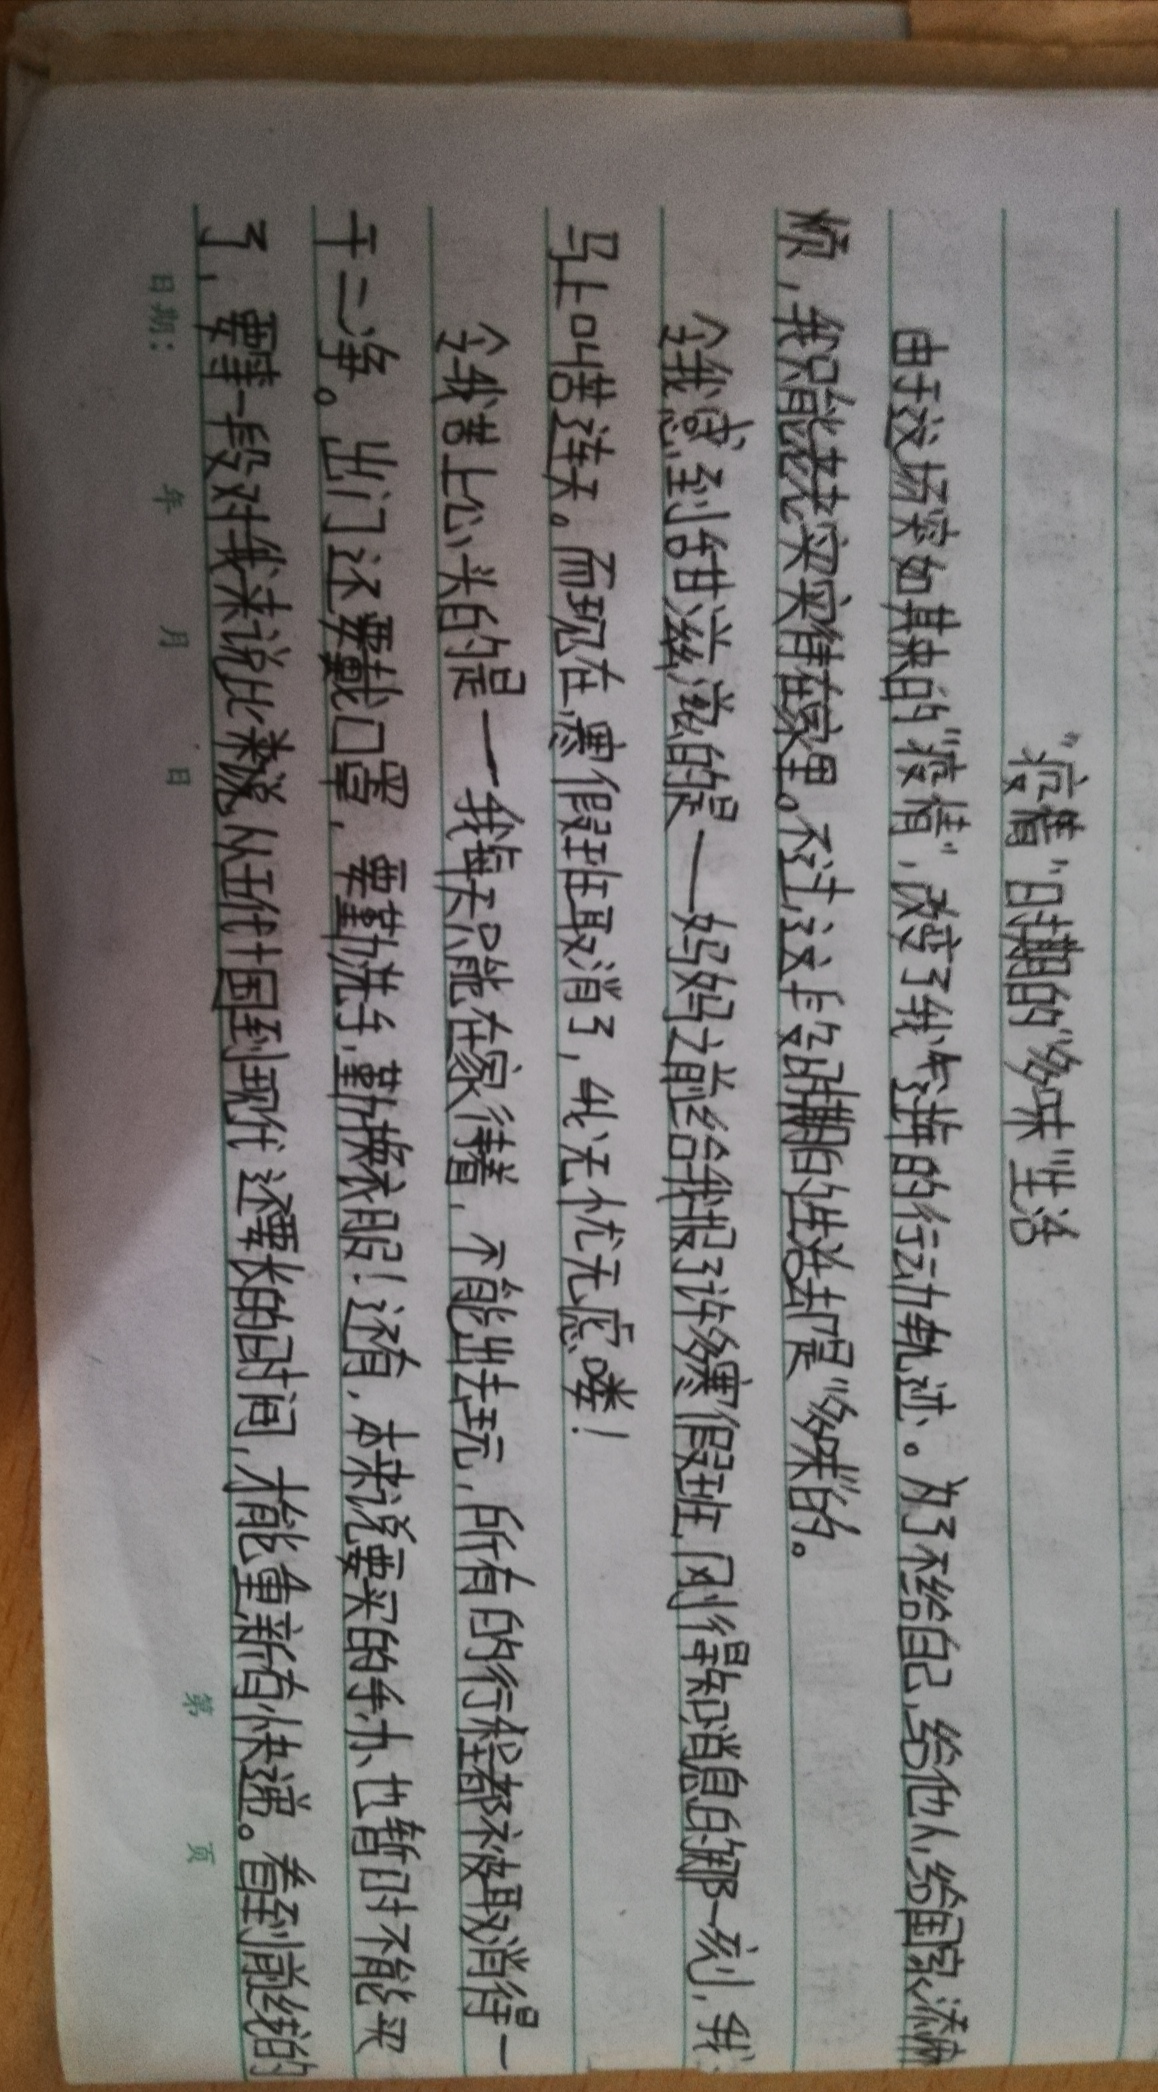 “疫情”时期的“多味”生活
由于这场突如其来的“疫情”，改变了我今年的行动轨迹。为了不给自己，给他人，给国家添麻
烦，我只能老老实实待在家里。不过，这段时期的生活却是“多味”的。
令我感到甘滋滋的是——妈妈之前给我报了许多寒假班，刚得知消息的那一刻，我
马上叫苦连天。而现在，寒假班取消了，我无忧无虑喽！
令我苦上心头的是——我每天只能在家待着，不能出去玩，所有的行程都被取消得一
干二净。出门还要戴口罩，要勤洗手，勤换衣服！还有，本来说要买的手办也暂时不能买
了，要等一段对我来说比 从五代十国到现代还要长的时间，才能重新有快递。看到前线的
日期： 年 月 日 第 页